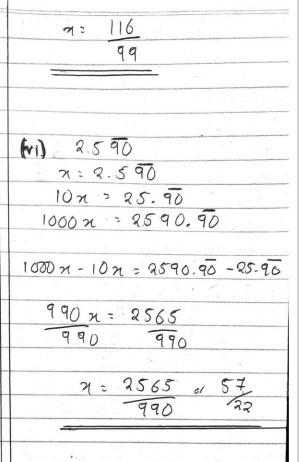 x = 116/99
(vi) 2.59̅0̅
x = 2.59̅0̅
10x = 25.9̅0̅
1000x = 2590.9̅0̅
1000x - 10x = 2590.9̅0̅ - 25.9̅0̅
990x/990 = 2565/990
x = 2565/990 or 57/22